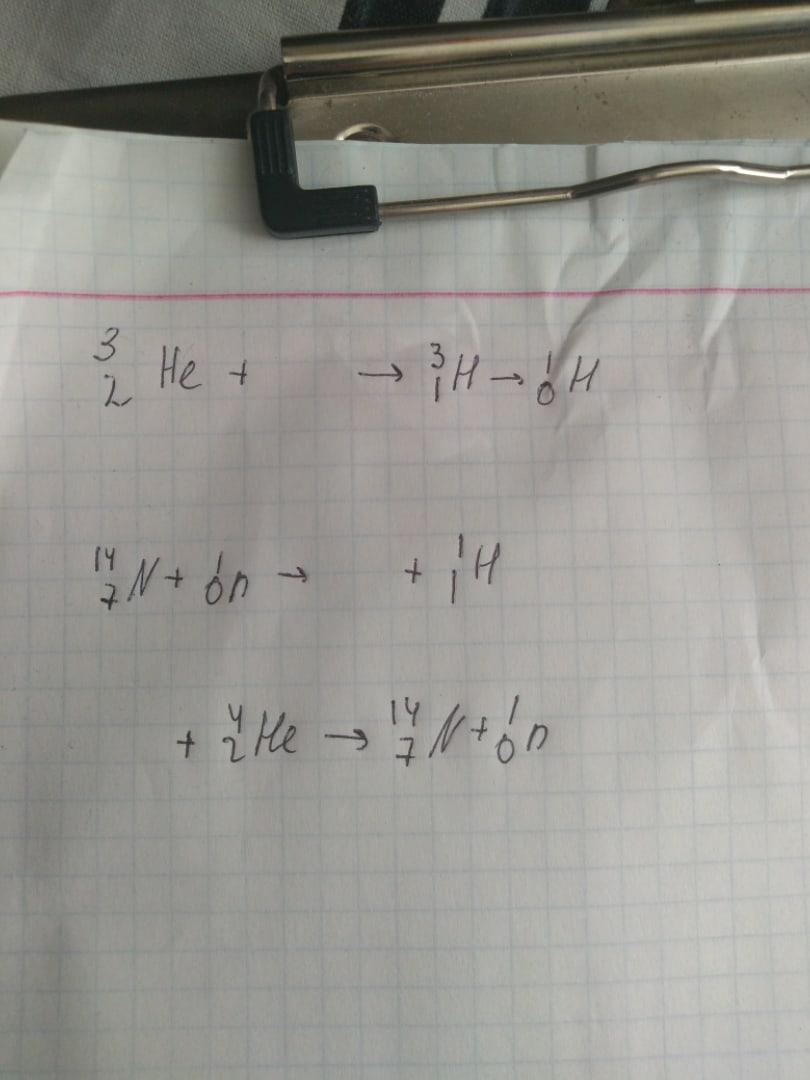 ³₂He + → ³₁H → ¹₀H
¹⁴₇N + ¹₀n → + ¹₁H
+ ⁴₂He → ¹⁴₇N + ¹₀n